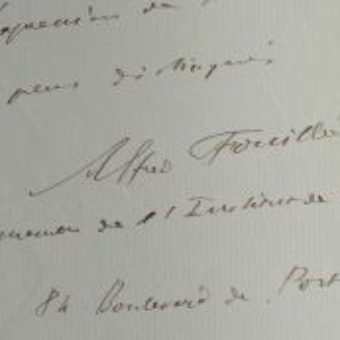 de
plus distingués
Alfred Fouillé
de l'Institut de
84 Boulevard de Port